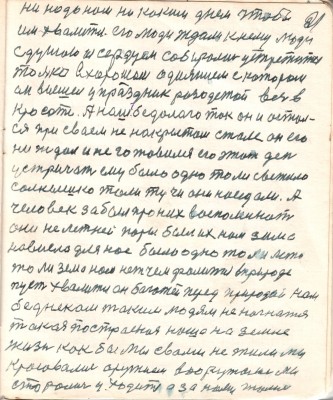 ни надо нам на каким днем чтобы
им хвалити. его люди ждали к нему люди
с душою и сердцем собирались
только в хорошом одияиием с котором
он вышел у праздник разодетой вся в
красоте. А наш бедолага так он и остаы-
ся при своем не накритом столе он его
не ждал и не готовился его этот ден
устричат ему было одно то ли светило
солнишко то ли тучи они наседали. А
человек забыл про них воспоминат
они не летней пори были их нам зима
нависла для нас было одно то ли лето
то ли зема нам нет чем фалити в природе
пуст хвалити он багатей перед природой нам
беднекам таким людям не нагнатся
такая построеная наша на земле
жизь как бы мы свами не жили мы
оружием вооружоными
сторони у ходити а за нами жизня